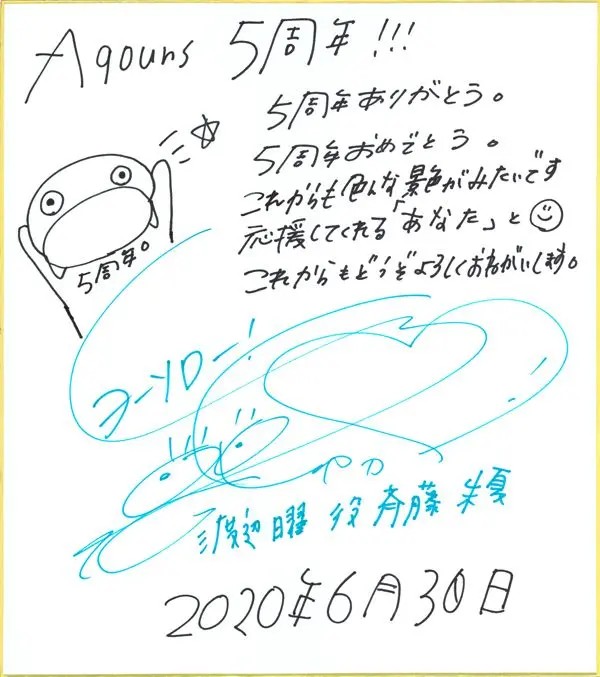 Aqours 5周年!!!
5周年ありがとう。
5周年おめでとう。
これからも色んな景色がみたいです
応援してくれる「あなた」と
これからもどうぞよろしくおねがいします。
5周年。
ヨーソロー!
渡辺曜 役 斉藤 朱夏
2020年6月30日